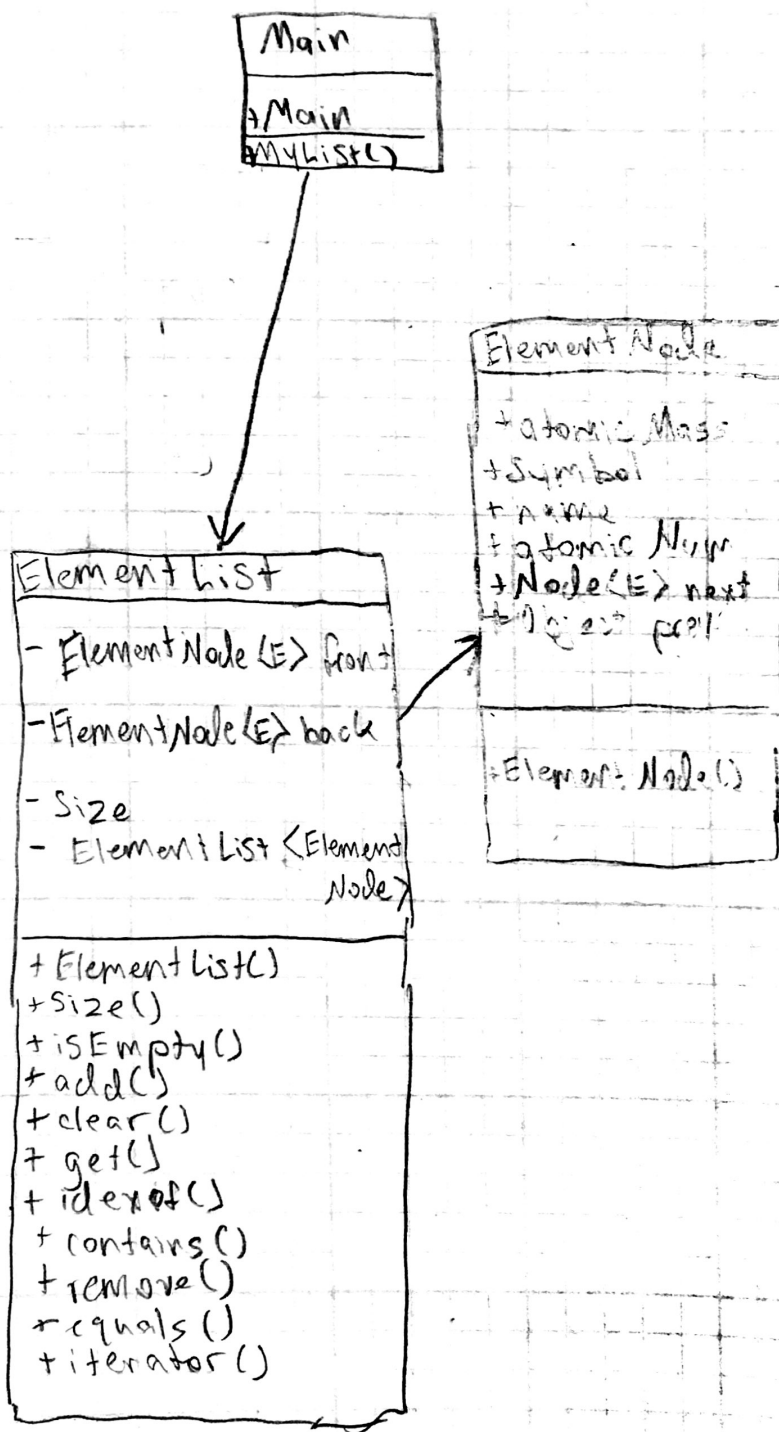 Main
+Main
+MyList()
Element Node
+ atomic Mass
+ Symbol
+ name
+ atomic Num
+ Node<E> next
+ prev
+ Element Node()
Element List
- ElementNode<E> front
- ElementNode<E> back
- Size
- Element List <Element
Node>
+ Element List()
+ Size()
+ isEmpty()
+ add()
+ clear()
+ get()
+ idexof()
+ contains()
+ remove()
+ equals()
+ iterator()